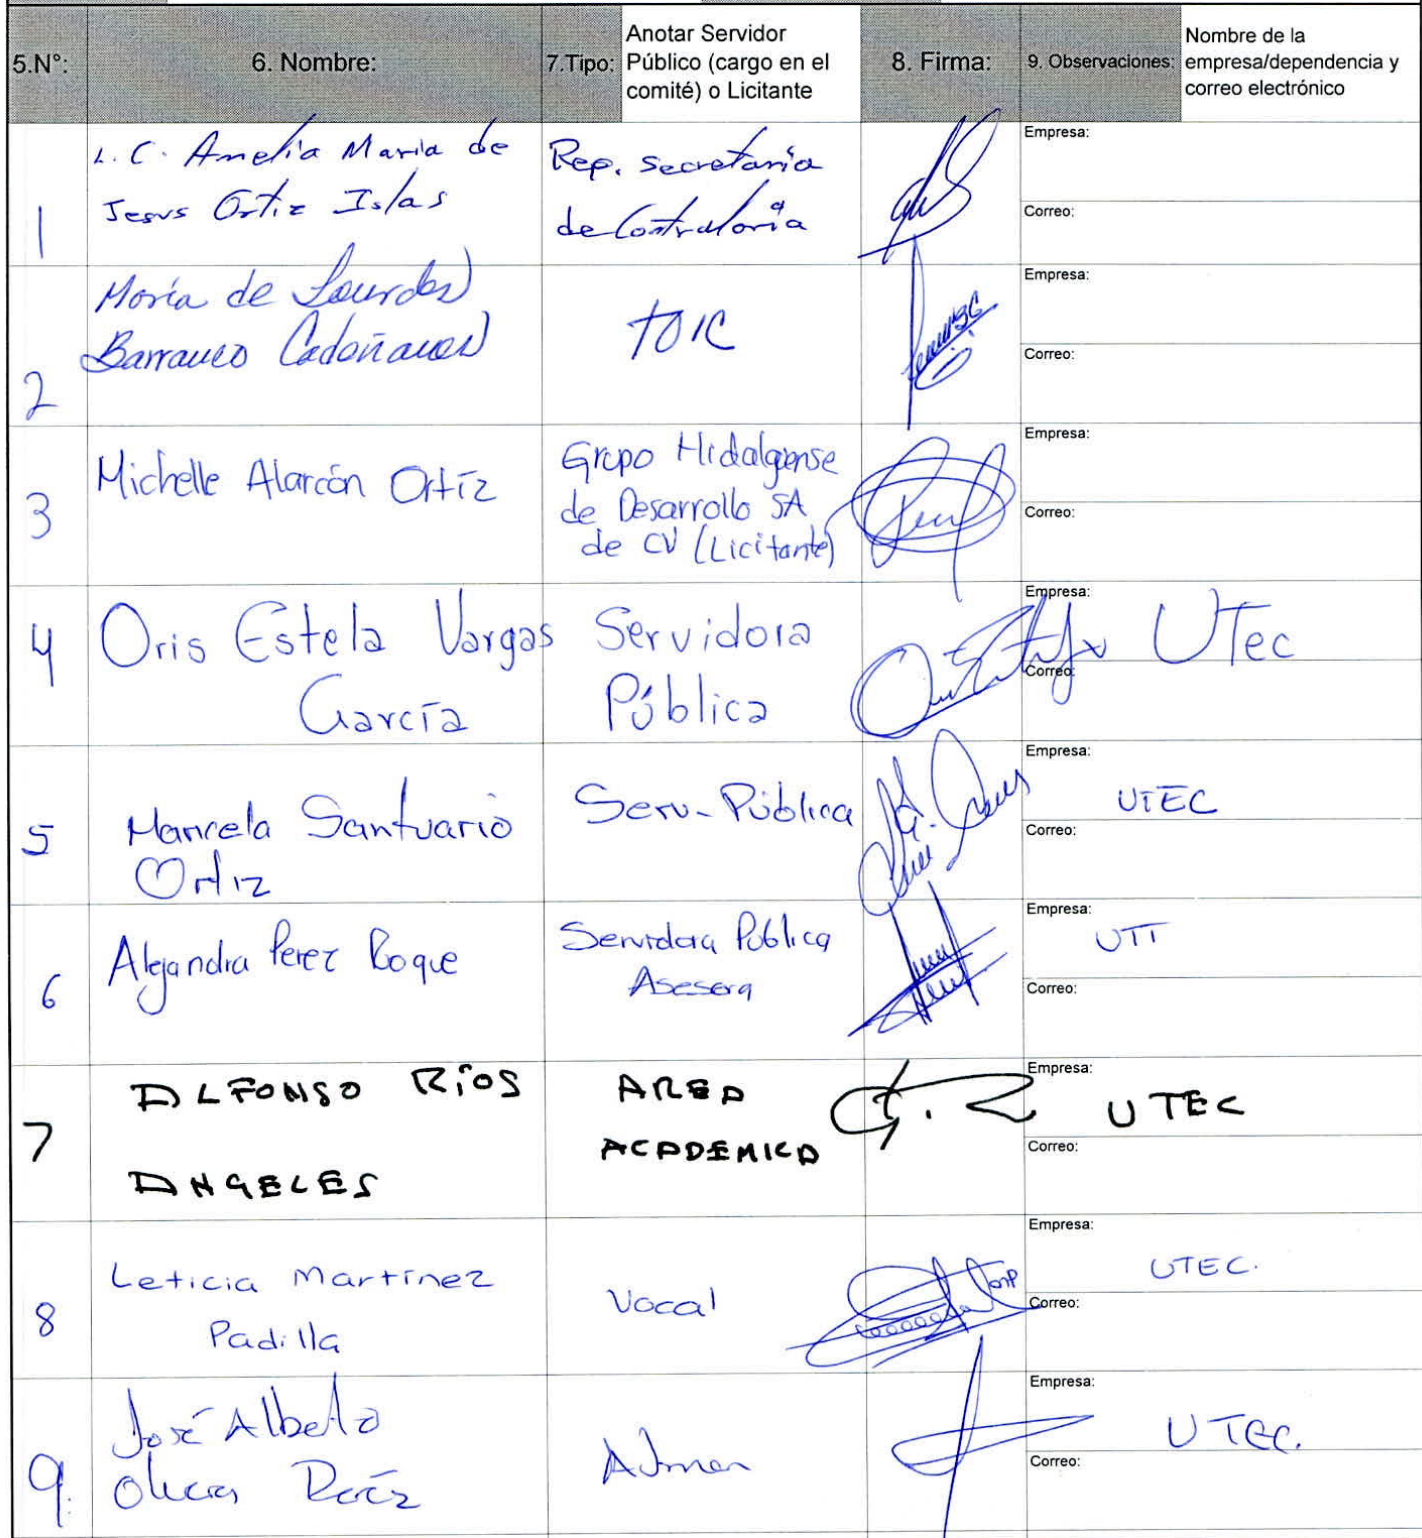 5.N°: 6. Nombre: 7.Tipo: Anotar Servidor
Público (cargo en el
comité) o Licitante
8. Firma: 9. Observaciones: Nombre de la
empresa/dependencia y
correo electrónico
1
L.C. Amelia Maria de
Jesus Ortiz Islas
Rep. Secretaría
de Contraloría
Empresa:
Correo:
2
María de Lourdes
Barranco
TOIC
Empresa:
Correo:
3
Michelle Alarcón Ortíz
Grupo Hidalguense
de Desarrollo SA
de CV (Licitante)
Empresa:
Correo:
4
Oris Estela Vargas
García
Servidora
Pública
Empresa:
UTec
Correo:
5
Maricela Santuario
Ortiz
Serv. Pública
Empresa:
UTEC
Correo:
6
Alejandra Perez Roque
Servidora Pública
Asesora
Empresa:
UTT
Correo:
7
ALFONSO RÍOS
ANGELES
AREA
ACADEMICA
Empresa:
UTEC
Correo:
8
Leticia Martínez
Padilla
Vocal
Empresa:
UTEC.
Correo:
9.
José Alberto
Empresa:
UTEC.
Correo: